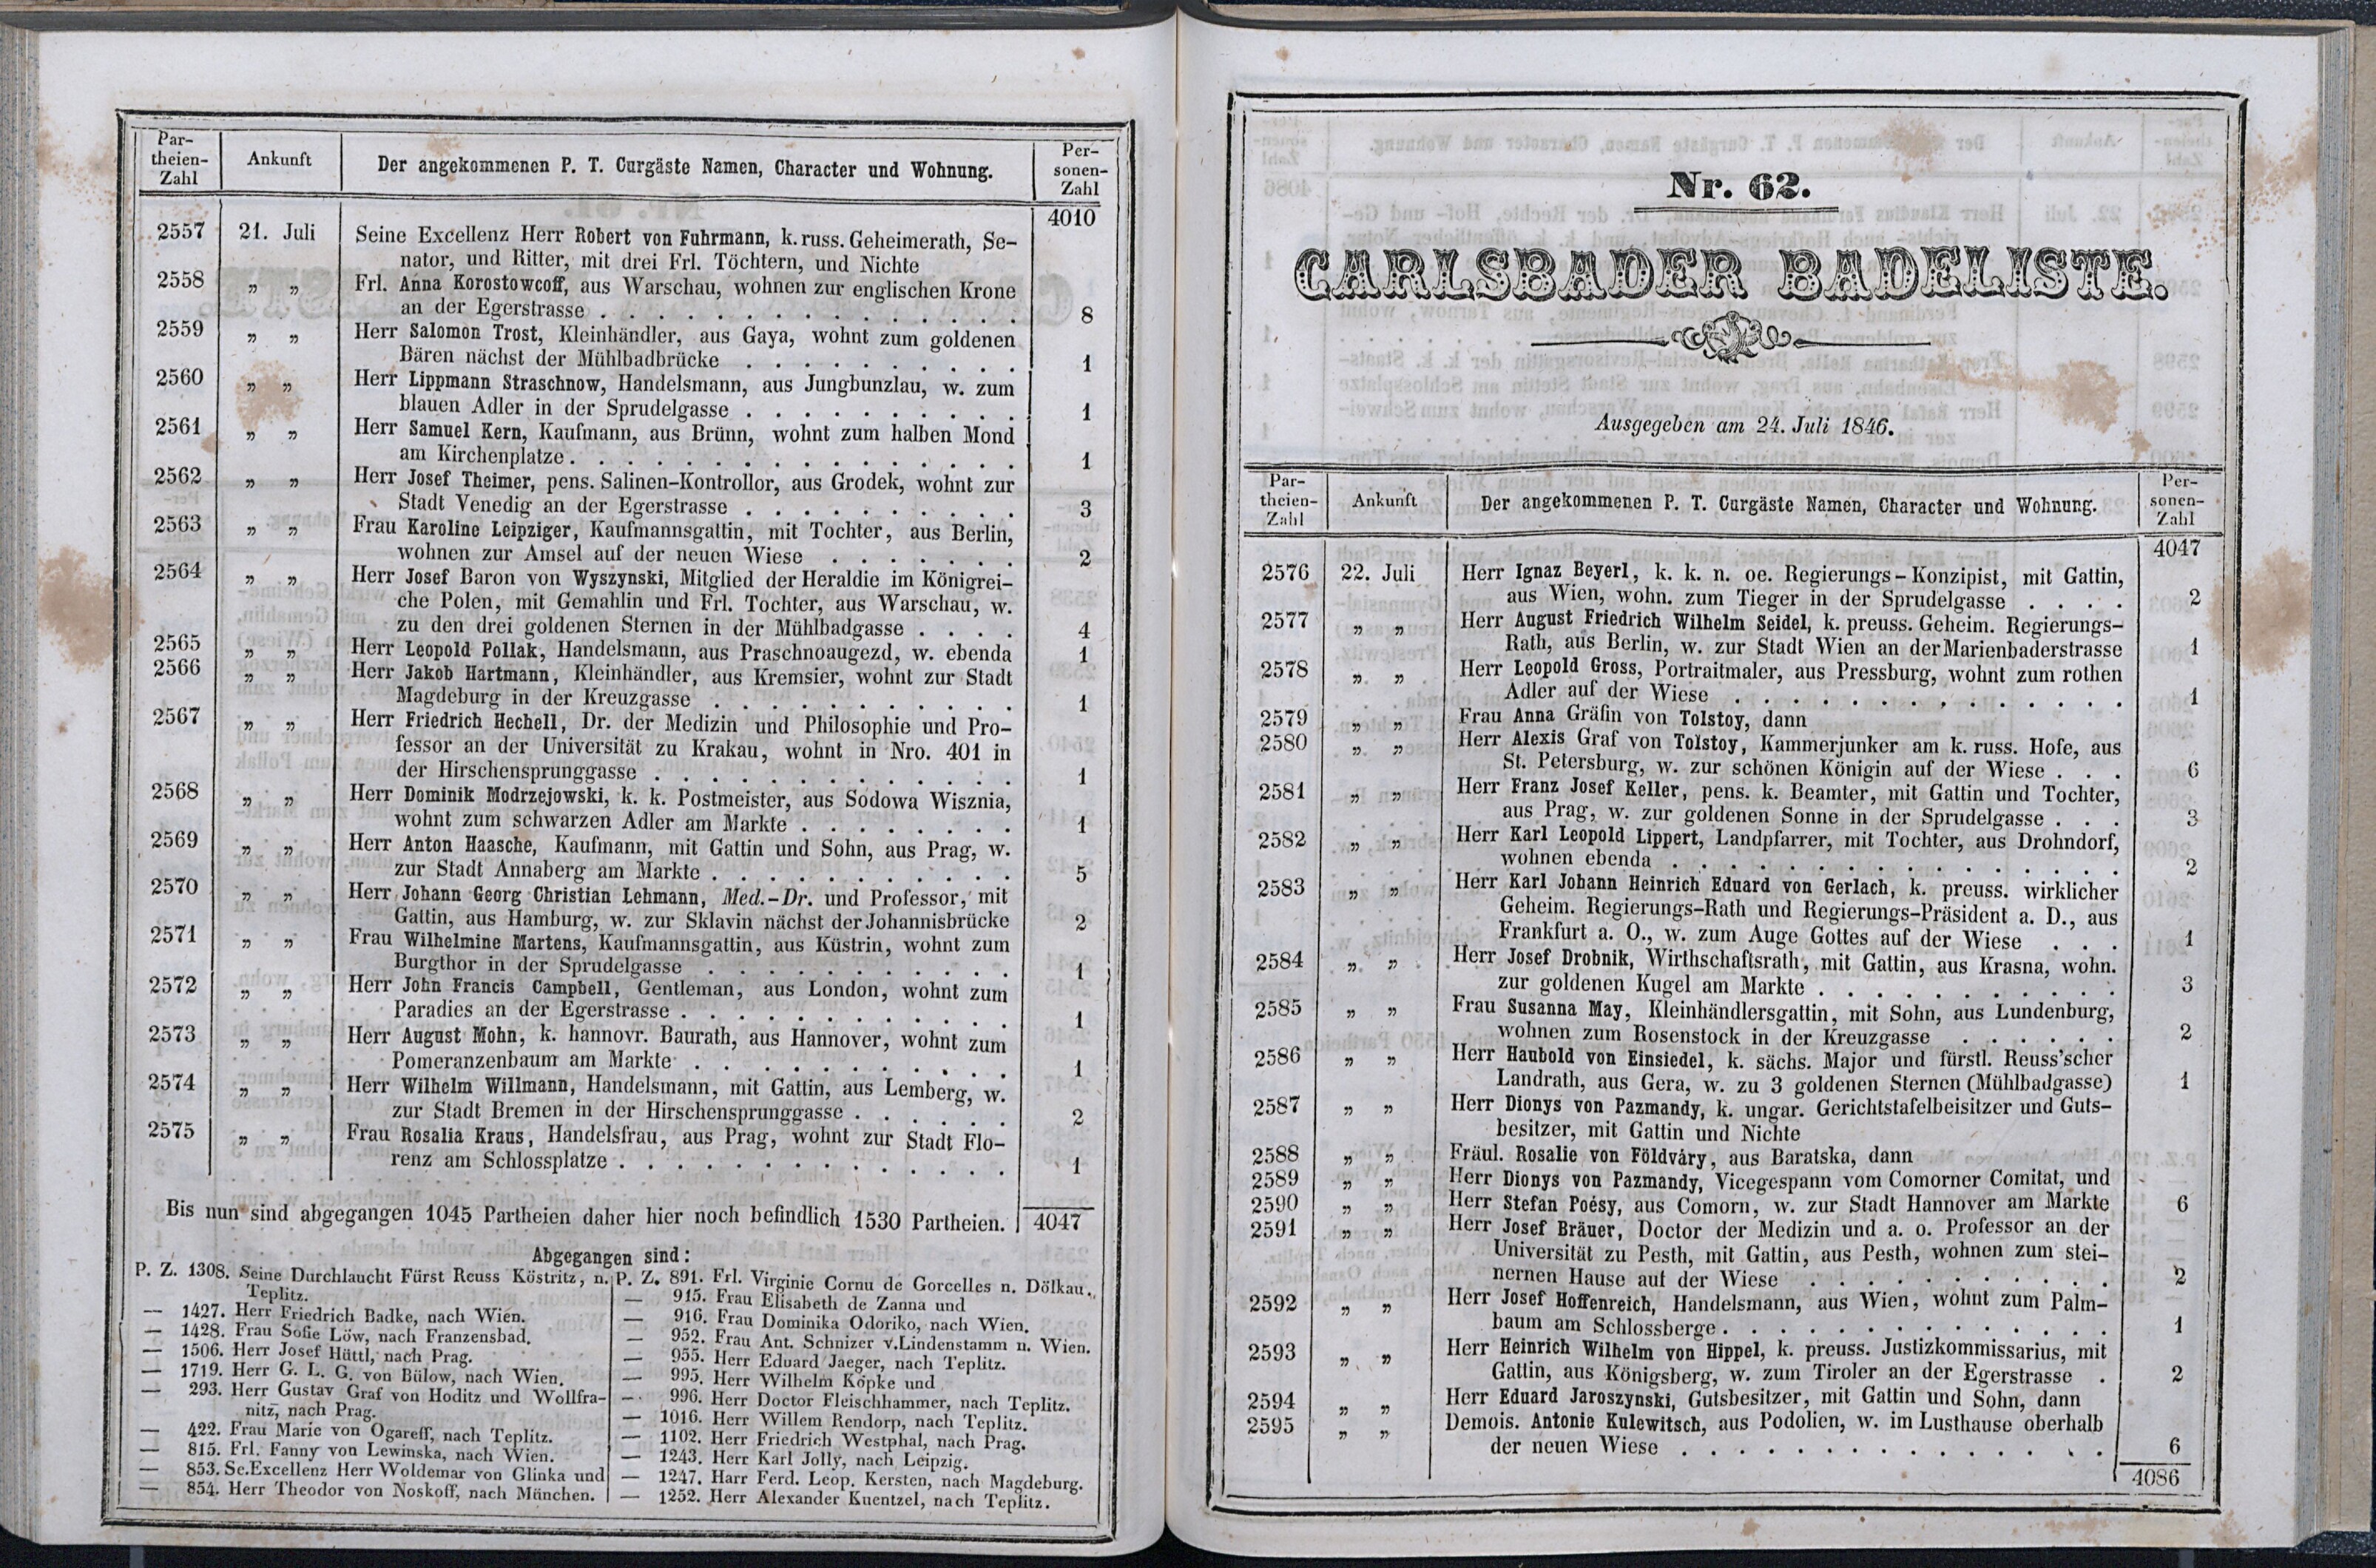 Par-
theien-
Zahl
Ankunft
Der angekommenen P. T. Curgäste Namen, Character und Wohnung.
Per-
sonen-
Zahl
4010
2557 21. Juli Seine Excellenz Herr Robert von Fuhrmann, k. russ. Geheimerath, Se-
nator, und Ritter, mit drei Frl. Töchtern, und Nichte
2558 „ „ Frl. Anna Korostowcoff, aus Warschau, wohnen zur englischen Krone
an der Egerstrasse . . . . . . . . . . . . . . . 8
2559 „ „ Herr Salomon Trost, Kleinhändler, aus Gaya, wohnt zum goldenen
Bären nächst der Mühlbadbrücke . . . . . . . . . . 1
2560 „ „ Herr Lippmann Straschnow, Handelsmann, aus Jungbunzlau, w. zum
blauen Adler in der Sprudelgasse . . . . . . . . . . 1
2561 „ „ Herr Samuel Kern, Kaufmann, aus Brünn, wohnt zum halben Mond
am Kirchenplatze . . . . . . . . . . . . . . . . 1
2562 „ „ Herr Josef Theimer, pens. Salinen-Kontrollor, aus Grodek, wohnt zur
Stadt Venedig an der Egerstrasse . . . . . . . . . . 3
2563 „ „ Frau Karoline Leipziger, Kaufmannsgattin, mit Tochter, aus Berlin,
wohnen zur Amsel auf der neuen Wiese . . . . . . . 2
2564 „ „ Herr Josef Baron von Wyszynski, Mitglied der Heraldie im Königrei-
che Polen, mit Gemahlin und Frl. Tochter, aus Warschau, w.
zu den drei goldenen Sternen in der Mühlbadgasse . . . . 4
2565 „ „ Herr Leopold Pollak, Handelsmann, aus Praschnoaugezd, w. ebenda 1
2566 „ „ Herr Jakob Hartmann, Kleinhändler, aus Kremsier, wohnt zur Stadt
Magdeburg in der Kreuzgasse . . . . . . . . . . . 1
2567 „ „ Herr Friedrich Hechell, Dr. der Medizin und Philosophie und Pro-
fessor an der Universität zu Krakau, wohnt in Nro. 401 in
der Hirschensprunggasse . . . . . . . . . . . . . 1
2568 „ „ Herr Dominik Modrzejowski, k. k. Postmeister, aus Sodowa Wisznia,
wohnt zum schwarzen Adler am Markte . . . . . . . . 1
2569 „ „ Herr Anton Haasche, Kaufmann, mit Gattin und Sohn, aus Prag, w.
zur Stadt Annaberg am Markte . . . . . . . . . . . 5
2570 „ „ Herr Johann Georg Christian Lehmann, Med.-Dr. und Professor, mit
Gattin, aus Hamburg, w. zur Sklavin nächst der Johannisbrücke 2
2571 „ „ Frau Wilhelmine Martens, Kaufmannsgattin, aus Küstrin, wohnt zum
Burgthor in der Sprudelgasse . . . . . . . . . . . 1
2572 „ „ Herr John Francis Campbell, Gentleman, aus London, wohnt zum
Paradies an der Egerstrasse . . . . . . . . . . . . 1
2573 „ „ Herr August Mohn, k. hannovr. Baurath, aus Hannover, wohnt zum
Pomeranzenbaum am Markte . . . . . . . . . . . 1
2574 „ „ Herr Wilhelm Willmann, Handelsmann, mit Gattin, aus Lemberg, w.
zur Stadt Bremen in der Hirschensprunggasse . . . . . . 2
2575 „ „ Frau Rosalia Kraus, Handelsfrau, aus Prag, wohnt zur Stadt Flo-
renz am Schlossplatze . . . . . . . . . . . . . . 1
Bis nun sind abgegangen 1045 Partheien daher hier noch befindlich 1530 Partheien. 4047
Abgegangen sind:
P. Z. 1308. Seine Durchlaucht Fürst Reuss Köstritz, n.
Teplitz.
— 1427. Herr Friedrich Badke, nach Wien.
— 1428. Frau Sofie Löw, nach Franzensbad.
— 1506. Herr Josef Hüttl, nach Prag.
— 1719. Herr G. L. G. von Bülow, nach Wien.
— 293. Herr Gustav Graf von Hoditz und Wollfra-
nitz, nach Prag.
— 422. Frau Marie von Ogareff, nach Teplitz.
— 815. Frl. Fanny von Lewinska, nach Wien.
— 853. Se. Excellenz Herr Woldemar von Glinka und
— 854. Herr Theodor von Noskoff, nach München.
P. Z. 891. Frl. Virginie Cornu de Gorcelles n. Dölkau.
— 915. Frau Elisabeth de Zanna und
— 916. Frau Dominika Odoriko, nach Wien.
— 952. Frau Ant. Schnizer v. Lindenstamm n. Wien.
— 955. Herr Eduard Jaeger, nach Teplitz.
— 995. Herr Wilhelm Köpke und
— 996. Herr Doctor Fleischhammer, nach Teplitz.
— 1016. Herr Willem Rendorp, nach Teplitz.
— 1102. Herr Friedrich Westphal, nach Prag.
— 1243. Herr Karl Jolly, nach Leipzig.
— 1247. Harr Ferd. Leop. Kersten, nach Magdeburg.
— 1252. Herr Alexander Kuentzel, nach Teplitz.
Nr. 62.
CARLSBADER BADELISTE.
Ausgegeben am 24. Juli 1846.
Par-
theien-
Zahl
Ankunft
Der angekommenen P. T. Curgäste Namen, Character und Wohnung.
Per-
sonen-
Zahl
4047
2576 22. Juli Herr Ignaz Beyerl, k. k. n. oe. Regierungs-Konzipist, mit Gattin,
aus Wien, wohn. zum Tieger in der Sprudelgasse . . . . 2
2577 „ „ Herr August Friedrich Wilhelm Seidel, k. preuss. Geheim. Regierungs-
Rath, aus Berlin, w. zur Stadt Wien an der Marienbaderstrasse 1
2578 „ „ Herr Leopold Gross, Portraitmaler, aus Pressburg, wohnt zum rothen
Adler auf der Wiese . . . . . . . . . . . . . . 1
2579 „ „ Frau Anna Gräfin von Tolstoy, dann
2580 „ „ Herr Alexis Graf von Tolstoy, Kammerjunker am k. russ. Hofe, aus
St. Petersburg, w. zur schönen Königin auf der Wiese . . . 6
2581 „ „ Herr Franz Josef Keller, pens. k. Beamter, mit Gattin und Tochter,
aus Prag, w. zur goldenen Sonne in der Sprudelgasse . . . 3
2582 „ „ Herr Karl Leopold Lippert, Landpfarrer, mit Tochter, aus Drohndorf,
wohnen ebenda . . . . . . . . . . . . . . . . 2
2583 „ „ Herr Karl Johann Heinrich Eduard von Gerlach, k. preuss. wirklicher
Geheim. Regierungs-Rath und Regierungs-Präsident a. D., aus
Frankfurt a. O., w. zum Auge Gottes auf der Wiese . . . 1
2584 „ „ Herr Josef Drobnik, Wirthschaftsrath, mit Gattin, aus Krasna, wohn.
zur goldenen Kugel am Markte . . . . . . . . . . . 3
2585 „ „ Frau Susanna May, Kleinhändlersgattin, mit Sohn, aus Lundenburg,
wohnen zum Rosenstock in der Kreuzgasse . . . . . . 2
2586 „ „ Herr Haubold von Einsiedel, k. sächs. Major und fürstl. Reuss'scher
Landrath, aus Gera, w. zu 3 goldenen Sternen (Mühlbadgasse) 1
2587 „ „ Herr Dionys von Pazmandy, k. ungar. Gerichtstafelbeisitzer und Guts-
besitzer, mit Gattin und Nichte
2588 „ „ Fräul. Rosalie von Földváry, aus Baratska, dann
2589 „ „ Herr Dionys von Pazmandy, Vicegespann vom Comorner Comitat, und
2590 „ „ Herr Stefan Poésy, aus Comorn, w. zur Stadt Hannover am Markte 6
2591 „ „ Herr Josef Bräuer, Doctor der Medizin und a. o. Professor an der
Universität zu Pesth, mit Gattin, aus Pesth, wohnen zum stei-
nernen Hause auf der Wiese . . . . . . . . . . . 2
2592 „ „ Herr Josef Hoffenreich, Handelsmann, aus Wien, wohnt zum Palm-
baum am Schlossberge . . . . . . . . . . . . . . 1
2593 „ „ Herr Heinrich Wilhelm von Hippel, k. preuss. Justizkommissarius, mit
Gattin, aus Königsberg, w. zum Tiroler an der Egerstrasse . 2
2594 „ „ Herr Eduard Jaroszynski, Gutsbesitzer, mit Gattin und Sohn, dann
2595 „ „ Demois. Antonie Kulewitsch, aus Podolien, w. im Lusthause oberhalb
der neuen Wiese . . . . . . . . . . . . . . . 6
4086